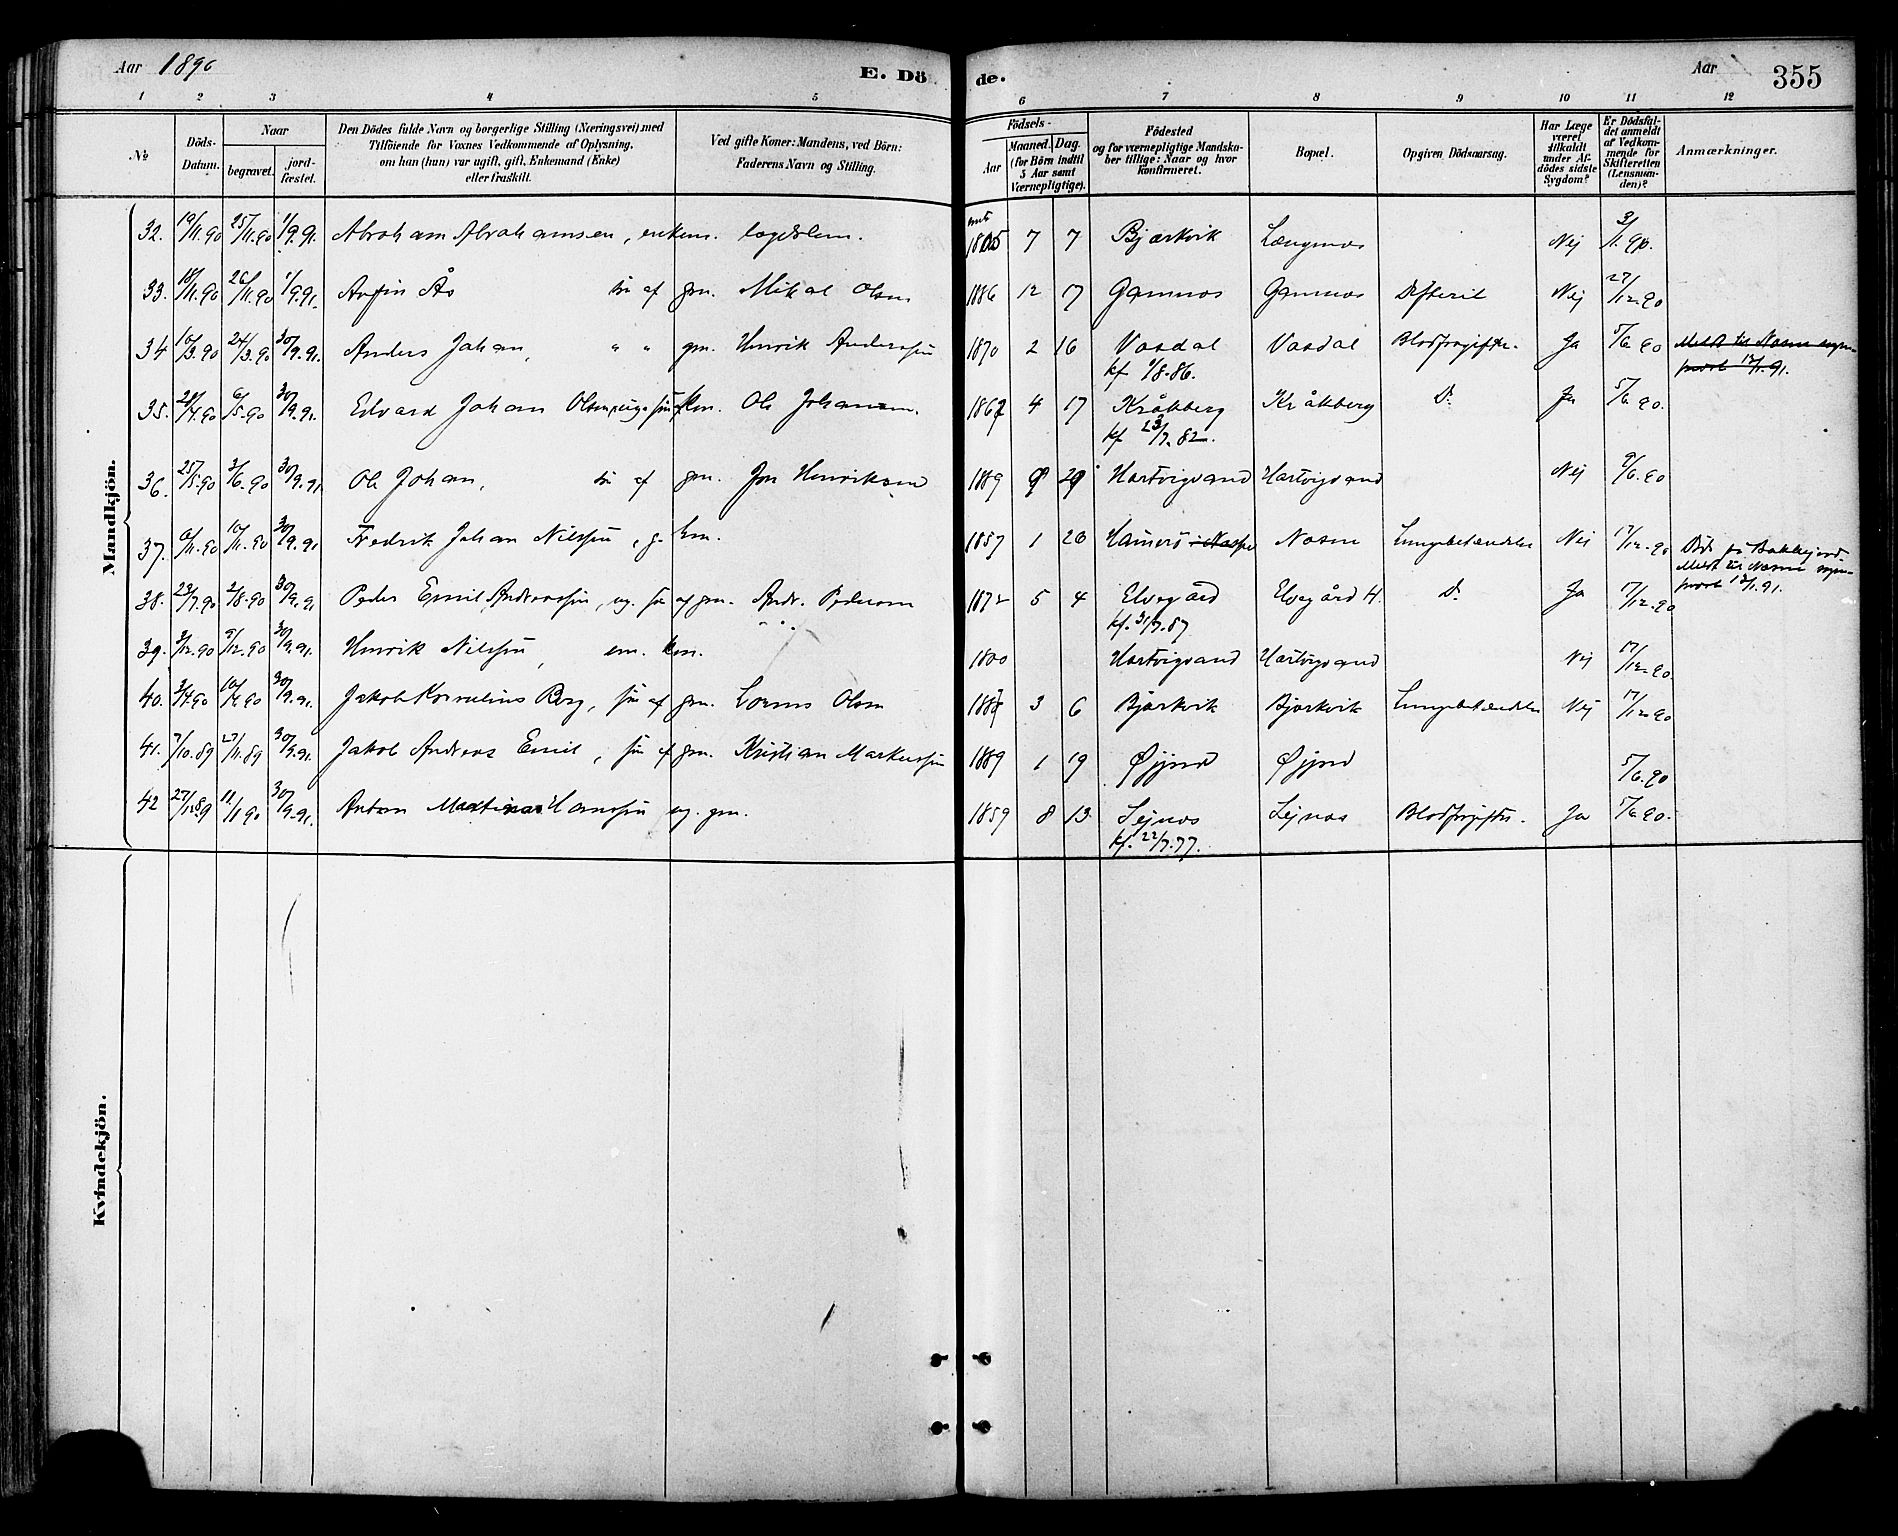 Aar 1890
E. Döde.
Aar
355
1 2 3 4 5 6 7 8 9 10 11 12
№
Döds-Datum.
Naar
begravet.
jord-fæstet.
Den Dödes fulde Navn og borgerlige Stilling (Næringsvei), med
Tilföiende for Voxnes Vedkommende af Oplysning,
om han (hun) var ugift, gift, Enkemand (Enke)
eller fraskilt.
Ved gifte Koner: Mandens, ved Börn:
Faderens Navn og Stilling.
Födsels-
Aar
Maaned. Dag.
(for Börn indtil
5 Aar samt
Værnepligtige).
Födested
og for værnepligtige Mandska-
ber tillige: Naar og hvor
konfirmeret.
Bopæl.
Opgiven Dödsaarsag.
Har Læge
været
tilkaldt
under Af-
dödes sidste
Sygdom?
Er Dödsfal-
det anmeldt
af Vedkom-
mende for
Skifteretten
(Lensman-
den)?
Anmærkninger.
Mandkjön.
32. 19/11.90 25/11.90 1/9.91. Abraham Abrahamsen, enkem. lægdslem. 7 7 Bjærkvik Nej
33. 18/11.90 26/11.90 1/9.91. Arfin Ås sön af gm. Mikal Olsen 1886 12 17 Gamnes Gamnes Difterit Nej 27/12.90
34 10/3.90 24/3.90 30/9.91. Anders Johan, " " gm. Henrik Anderssön 1870 2 16 Vasdal Vasdal Blodforgiftn. Ja 5/6.90
kf /8.86.
35. 6/5.90 30/9.91. Edvard Johan Olsen, sön af Ole Johansen. 4 17 Kråkberg Kråkberg D: Ja 5/6.90.
kf 23/7.82.
36. 25/5.90 3/6.90 30/9.91 Ole Johan, sön af gm. Jon Henriksen 1889 Hartvigvand Hartvigvand Nej 9/6.90
37. 6/11.90 10/11.90 30/9.91 Fredrik Johan Nilssön, g. 1857 1 Hamerö Lungebetændelse Nej 17/12.90 Död på Bakkejord
Meldt til
12/1.91.
38. 29/7.90 2/8.90 30/9.91 Peder Emil Andreassön, ug. sön af gm. Andr. Pedersen 1872 5 4 Elvegård Elvegård H. D: Ja 17/12.90
kf. 31/7.87
39. 3/12.90 9/12.90 30/9.91. Henrik Nilssön, em. 1800 Hartvigvand Hartvigvand Nej 17/12.90
40. 3/4.90 30/9.91. Jakob Kornelius Berg, sön af gm. Olsen 3 6 Bjærkvik Bjærkvik Lungebetændelse Nej 17/12.90
41. 7/10.89 27/11.89 30/9.91. Jakob Andreas Emil, sön af gm. Kristian Markussön 1889 1 19 Öjjord Öjjord 5/6.90
42 11/1 90 30/9.91. Anton Hanssön ug. gm. 1859 8 13. Lejnes Lejnes Blodforgiftn. Ja 5/6.90.
kf. 22/7.77.
Kvindekjön.